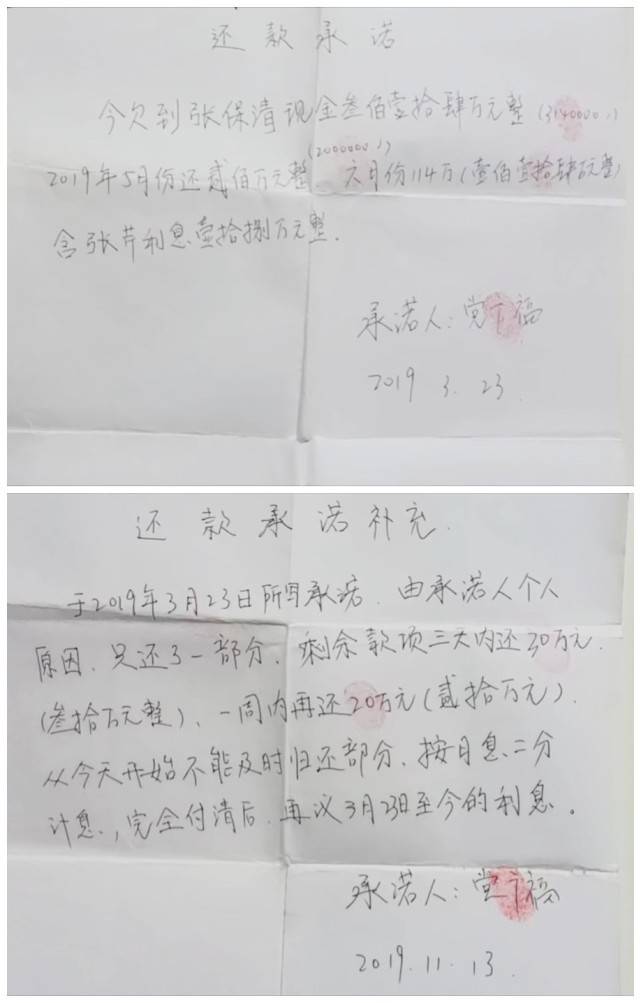 还款承诺
今欠到张保清现金叁佰壹拾肆万元整(3140000)
(2000000)
2019年5月份还贰佰万元整 六月份114万(壹佰壹拾肆万元整)
含张芹利息壹拾捌万元整.
承诺人:党 福
2019 3. 23.
还款承诺补充.
于2019年3月23日所写承诺.由承诺人个人
原因、只还了一部分.剩余款项三天内还30万元.
(叁拾万元整)、一周内再还20万元(贰拾万元).
从今天开始不能及时归还部分、按月息二分
计息,完全付清后.再议3月23日至今的利息。
承诺人:党 福
2019.11.13.